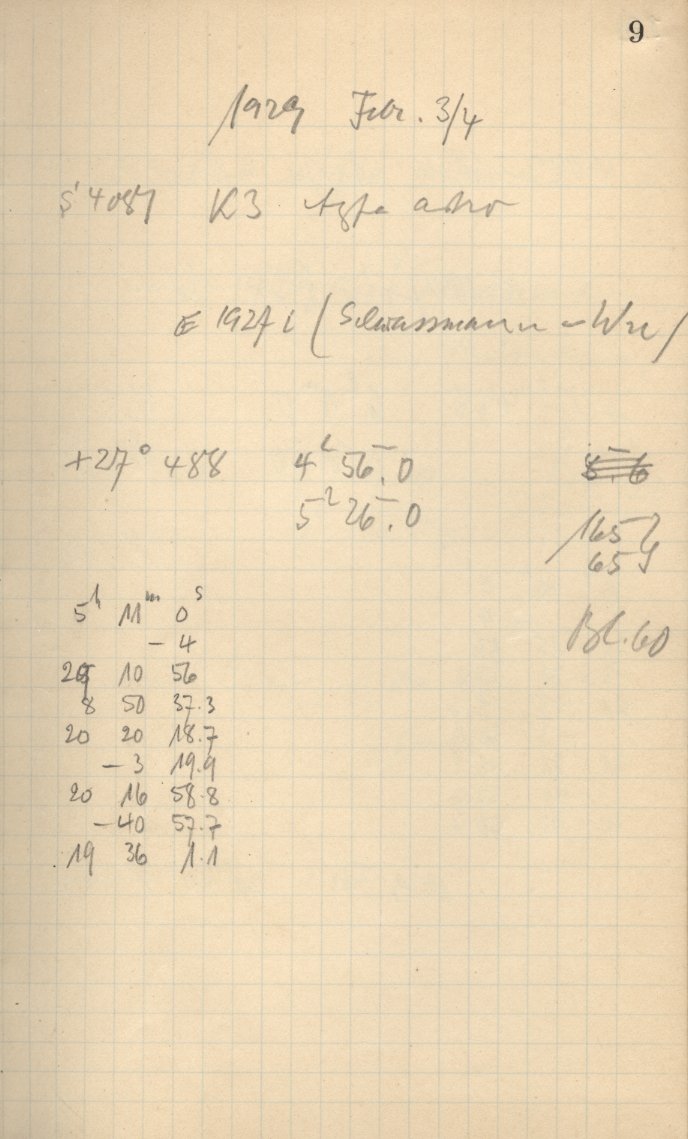 9
1929 Febr. 3/4
S 4087 K3 Agfa astro
1927 (Schwassmann-W
+27° 488 4h 56m.0 8m.6
5h 26m.0
165
65
Bl. 60
5h 11m 0s
- 4
29 10 56
8 50 37.3
20 20 18.7
- 3 19.9
20 16 58.8
- 40 57.7
19 36 1.1